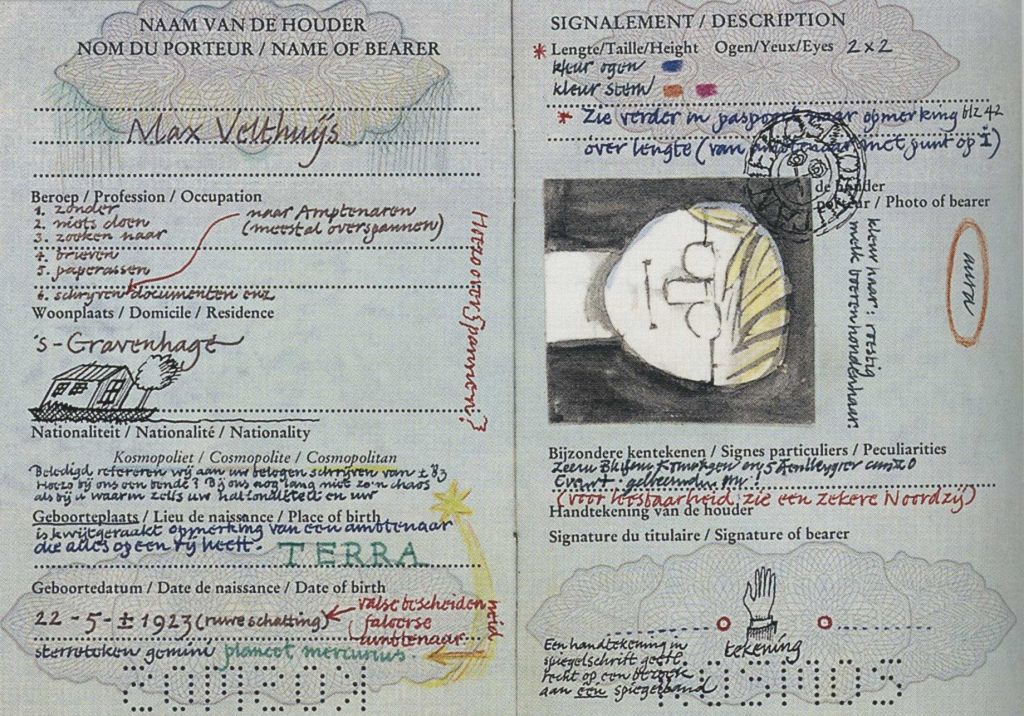 NAAM VAN DE HOUDER
NOM DU PORTEUR / NAME OF BEARER
Max Velthuijs
Beroep / Profession / Occupation
1. zonder
2. niets doen
3. zoeken naar
4. brieven
5. paperassen
6. schrijven documenten enz
naar Amptenaren
(meestal overspannen)
Hoezo overspannen!?
Woonplaats / Domicile / Residence
's-Gravenhage
Nationaliteit / Nationalité / Nationality
Kosmopoliet / Cosmopolite / Cosmopolitan
Beledigd refereren wij aan uw belogen schrijven van ± '83
Hoezo bij ons een bende? Bij ons nog lang niet zo'n chaos
als bij u waarin zelfs uw nationaliteit en uw
Geboorteplaats / Lieu de naissance / Place of birth
is kwijtgeraakt opmerking van een ambtenaar
die alles op een rij heeft.
TERRA
Geboortedatum / Date de naissance / Date of birth
22 - 5 - ± 1923 (ruwe schatting)
valse bescheiden
heid
jaloerse
ambtenaar
sterreteken gemini planeet mercurius.
SIGNALEMENT / DESCRIPTION
* Lengte/Taille/Height Ogen/Yeux/Eyes 2 x 2
kleur ogen
kleur stem
* Zie verder in paspoort naar opmerking blz 42
over lengte (van ambtenaar met punt op i)
de houder
porteur / Photo of bearer
kleur haar: roestig
melk boerenhondenhaar.
aura
Bijzondere kentekenen / Signes particuliers / Peculiarities
(voor leesbaarheid zie een zekere Noordzij)
Handtekening van de houder
Signature du titulaire / Signature of bearer
tekening
Een handtekening in
spiegelschrift geeft
recht op een bezoek
aan één spiegelband